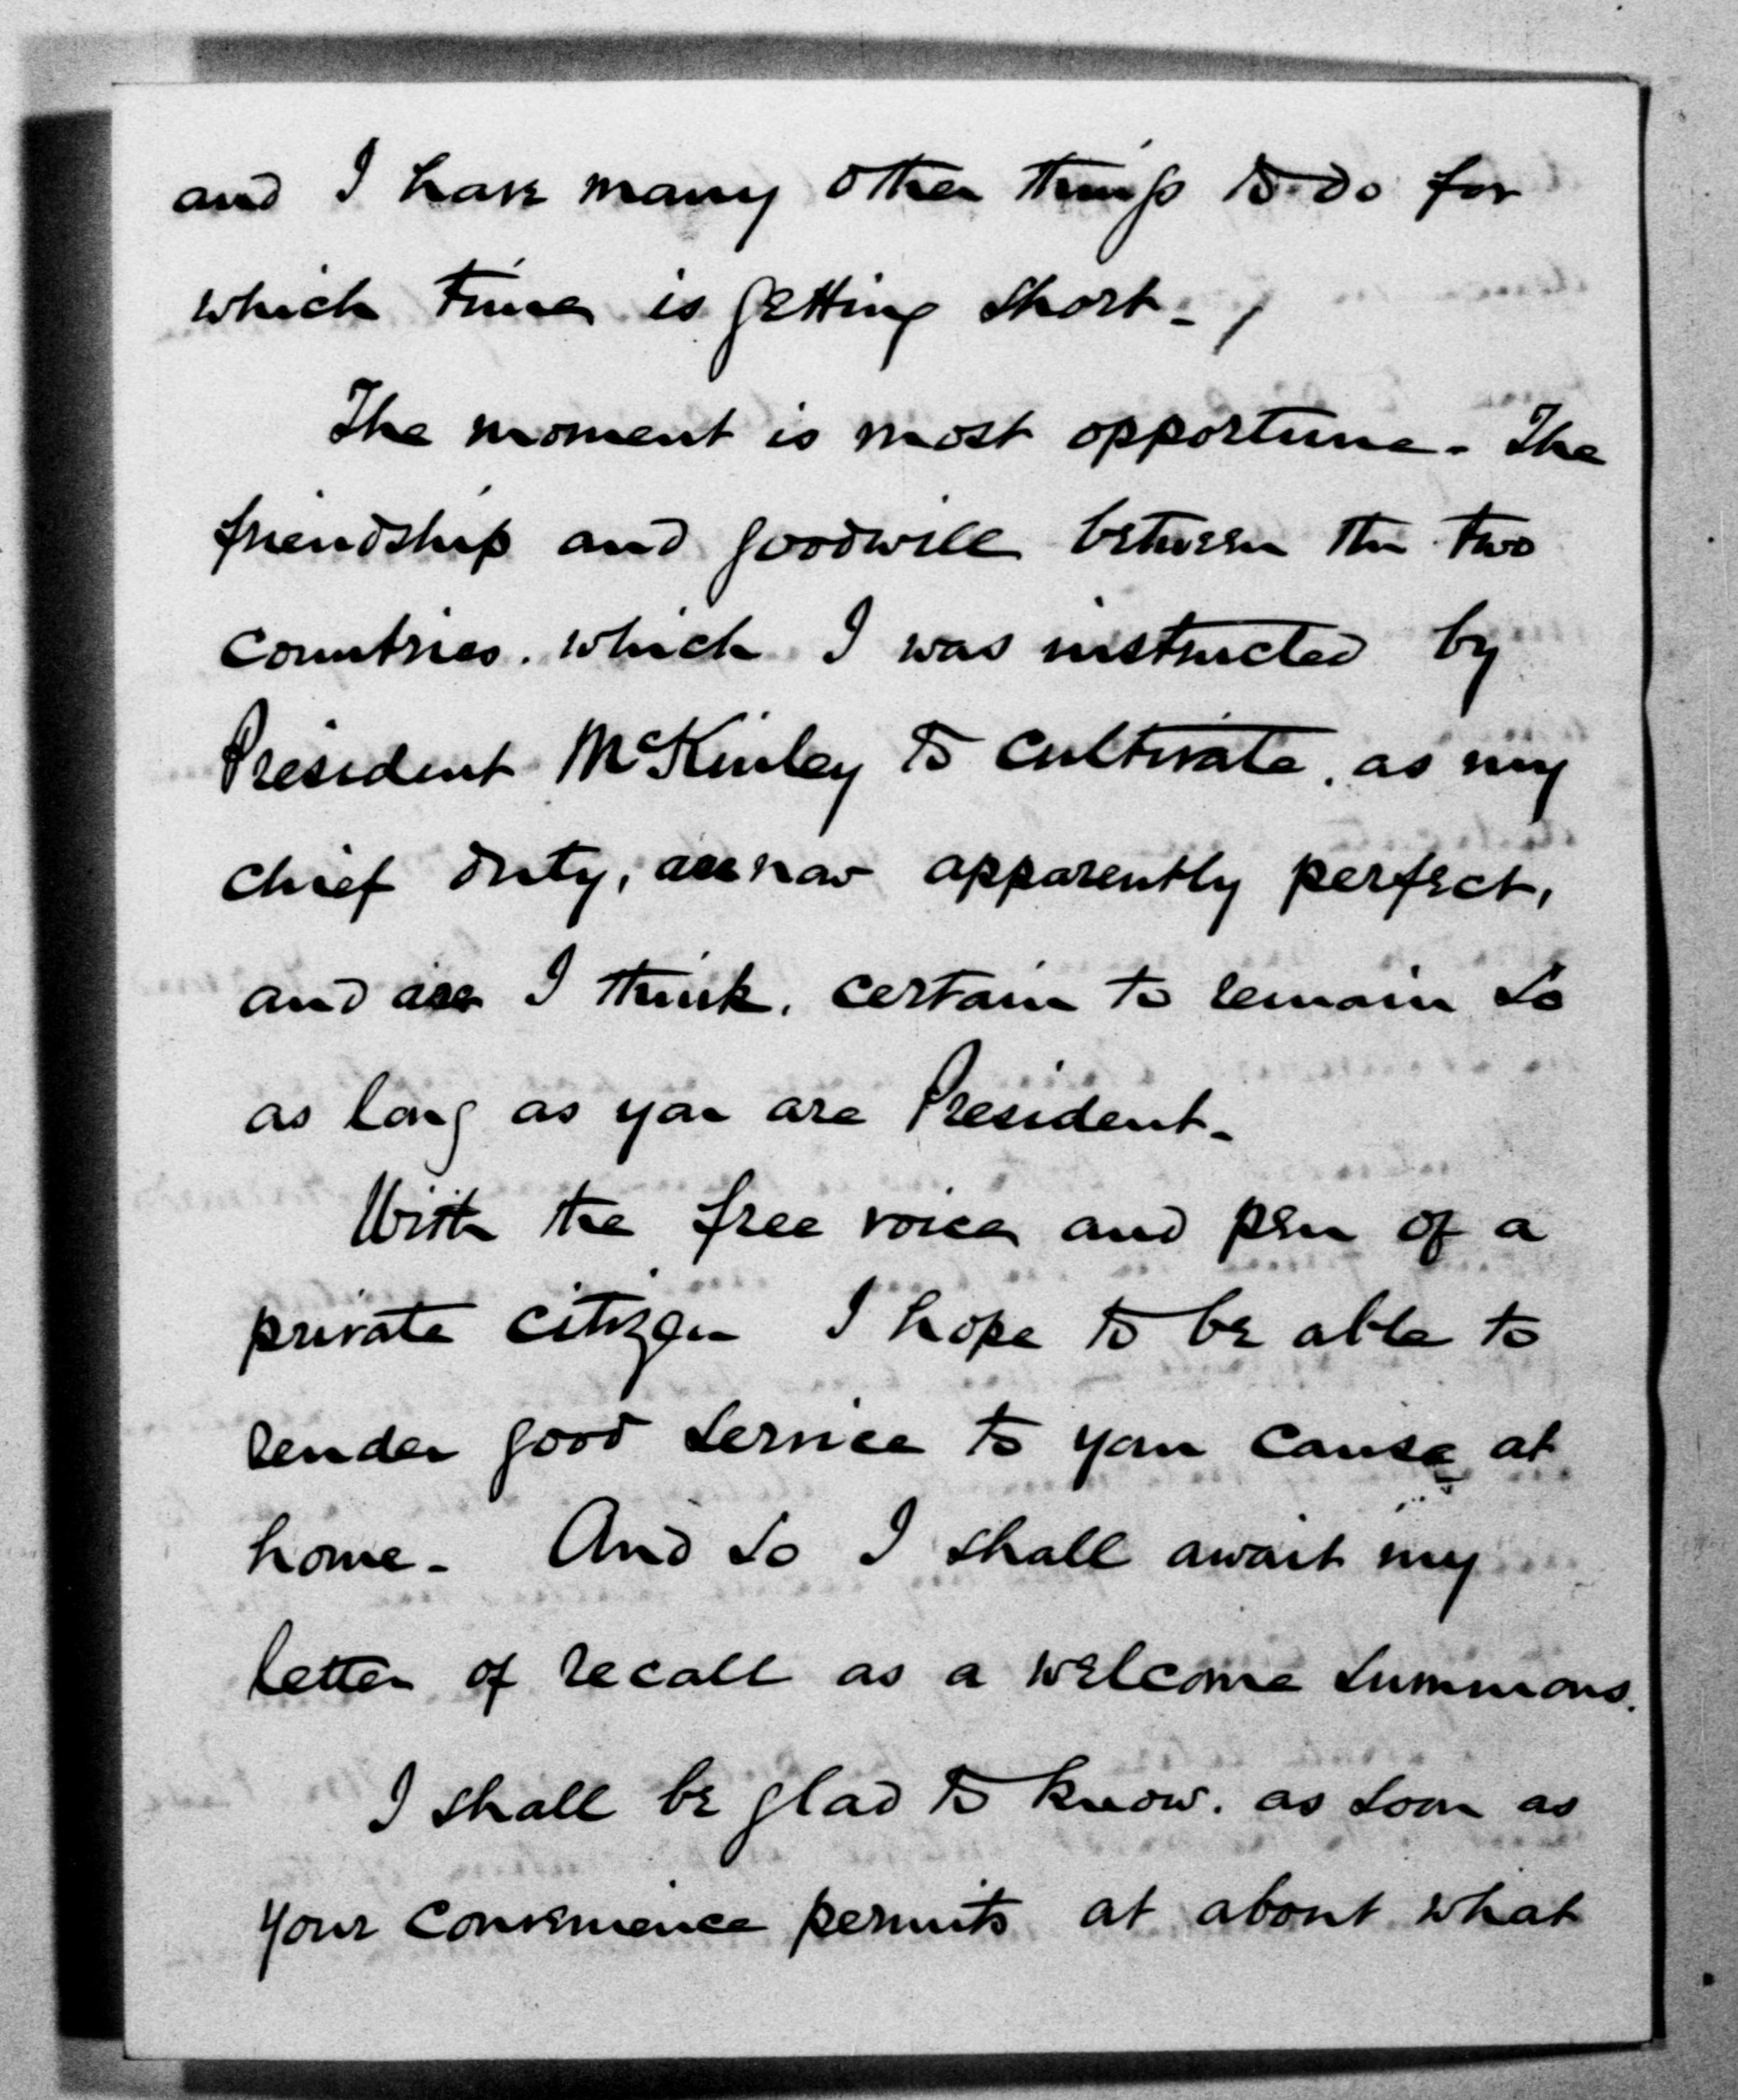 and I have many other things to do for
which time is getting short -
The moment is most opportune - The
friendship and goodwill between the two
countries, which I was instructed by
President McKinley to cultivate, as my
chief duty, are now apparently perfect,
and are I think, certain to remain so
as long as you are President -
With the free voice and pen of a
private citizen I hope to be able to
render good service to your cause at
home - And so I shall await my
letter of recall as a welcome summons.
I shall be glad to know, as soon as
your convenience permits at about what